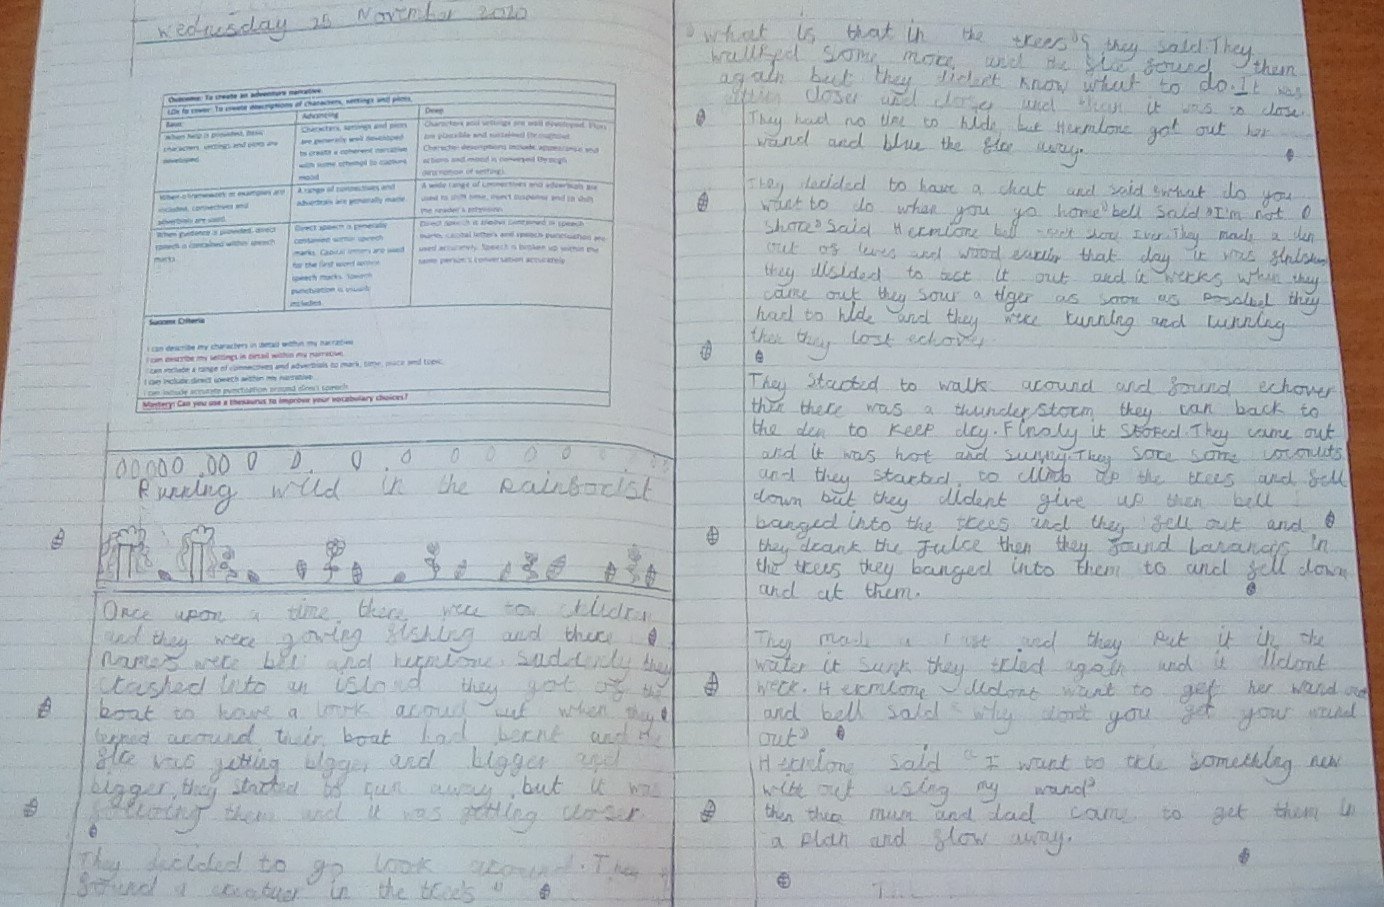 Wednesday 25 November 2020
Outcome: To create an adventure narrative
LOs to cover: To create descriptions of characters, settings and plots.
Basic
Advancing
Deep
When help is provided, basic
characters, settings and plots are
developed.
Characters, settings and plots
are generally well developed
to create a coherent narrative
with some attempt to capture
mood
Characters and settings are well developed. Plots
are plausible and sustained throughout.
Character descriptions include appearance and
actions and mood is conveyed through
description of setting.
When a framework or examples are
included, connectives and
adverbials are used.
A range of connectives and
adverbials are generally made
A wide range of connectives and adverbials are
used to shift time, inject suspense and to shift
the reader's attention.
When guidance is provided, direct
speech is contained within speech
marks.
Direct speech is generally
contained within speech
marks. Capital letters are used
for the first word within
speech marks. Speech
punctuation is usually
included.
Direct speech is always contained in speech
marks, capital letters and speech punctuation are
used accurately. Speech is broken up within the
same person's conversation accurately
Success Criteria
I can describe my characters in detail within my narrative
I can describe my settings in detail within my narrative.
I can include a range of connectives and adverbials to mark, time, place and topic.
I can include direct speech within my narrative
I can include accurate punctuation around direct speech
Mastery: Can you use a thesaurus to improve your vocabulary choices?
Running wild in the Rainborist
Once upon a time, there were tow children
and they were gowing fishing and there
names were bell and hermione. Suddenly they
crashed into an island they got of the
boat to have a look around but when they
turned around their boat had bernt and the
fire was getting bigger and bigger and
bigger, they started to run away but it was
following them and it was getting closer
They decided to go look around. Then
found a creatuer in the trees "
"what is that in the trees" they said. They
wallked some more and the fire found them
again but they dident know what to do. It was
closer and closer and then it was so close.
They had no time to hide, but Hermione got out her
wand and blue the fire away.
They decided to have a chat and said "what do you
want to do when you go home" bell said "I'm not
shore" said Hermione bell shore Iver. They made a den
out of leves and wood earlier that day it was finished
they disided to tect it out and it werks when they
came out they sour a tiger as soon as they
had to hide and they were running and running
then they lost echover
They started to walk around and found echover
then there was a thunder storm they ran back to
the den to keep dry. Finaly it stoped. They came out
and it was hot and sunny. They sore some coconuts
and they started to climb up the trees and fell
down but they dident give up then bell
banged into the trees and they fell out and
they drank the juice then they found bananas in
the trees they banged into them to and fell down
and at them.
They made a raft and they put it in the
water it sunk they tried again and it didont
werk. Hermione didont want to get her wand out
and bell said "why dont you get your wand
out"
Hermione said "I want to trie something new
with out using my wand"
then ther mum and dad came to get them in
a plan and flow away.